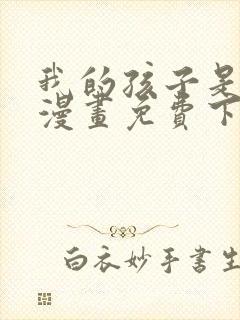 我的孩子是
漫畫免費下
白衣妙手書生